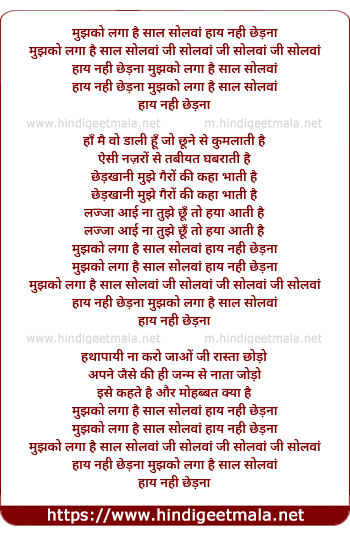 मुझको लगा है साल सोलवां हाय नही छेड़ना
मुझको लगा है साल सोलवां जी सोलवां जी सोलवां जी सोलवां
हाय नही छेड़ना मुझको लगा है साल सोलवां
हाय नही छेड़ना मुझको लगा है साल सोलवां
हाय नही छेड़ना
www.hindigeetmala.net m.hindigeetmala.net
हाँ मै वो डाली हूँ जो छूने से कुमलाती है
ऐसी नज़रों से तबीयत घबराती है
छेड़खानी मुझे गैरों की कहा भाती है
छेड़खानी मुझे गैरों की कहा भाती है
लज्जा आई ना तुझे छूँ तो हया आती है
लज्जा आई ना तुझे छूँ तो हया आती है
मुझको लगा है साल सोलवां हाय नही छेड़ना
मुझको लगा है साल सोलवां हाय नही छेड़ना
मुझको लगा है साल सोलवां जी सोलवां जी सोलवां जी सोलवां
हाय नही छेड़ना मुझको लगा है साल सोलवां
हाय नही छेड़ना
www.hindigeetmala.net m.hindigeetmala.net
हथापायी ना करो जाओं जी रास्ता छोड़ो
अपने जैसे की ही जन्म से नाता जोड़ो
इसे कहते है और मोहब्बत क्या है
मुझको लगा है साल सोलवां हाय नही छेड़ना
मुझको लगा है साल सोलवां हाय नही छेड़ना
मुझको लगा है साल सोलवां जी सोलवां जी सोलवां जी सोलवां
हाय नही छेड़ना मुझको लगा है साल सोलवां
हाय नही छेड़ना
https://www.hindigeetmala.net